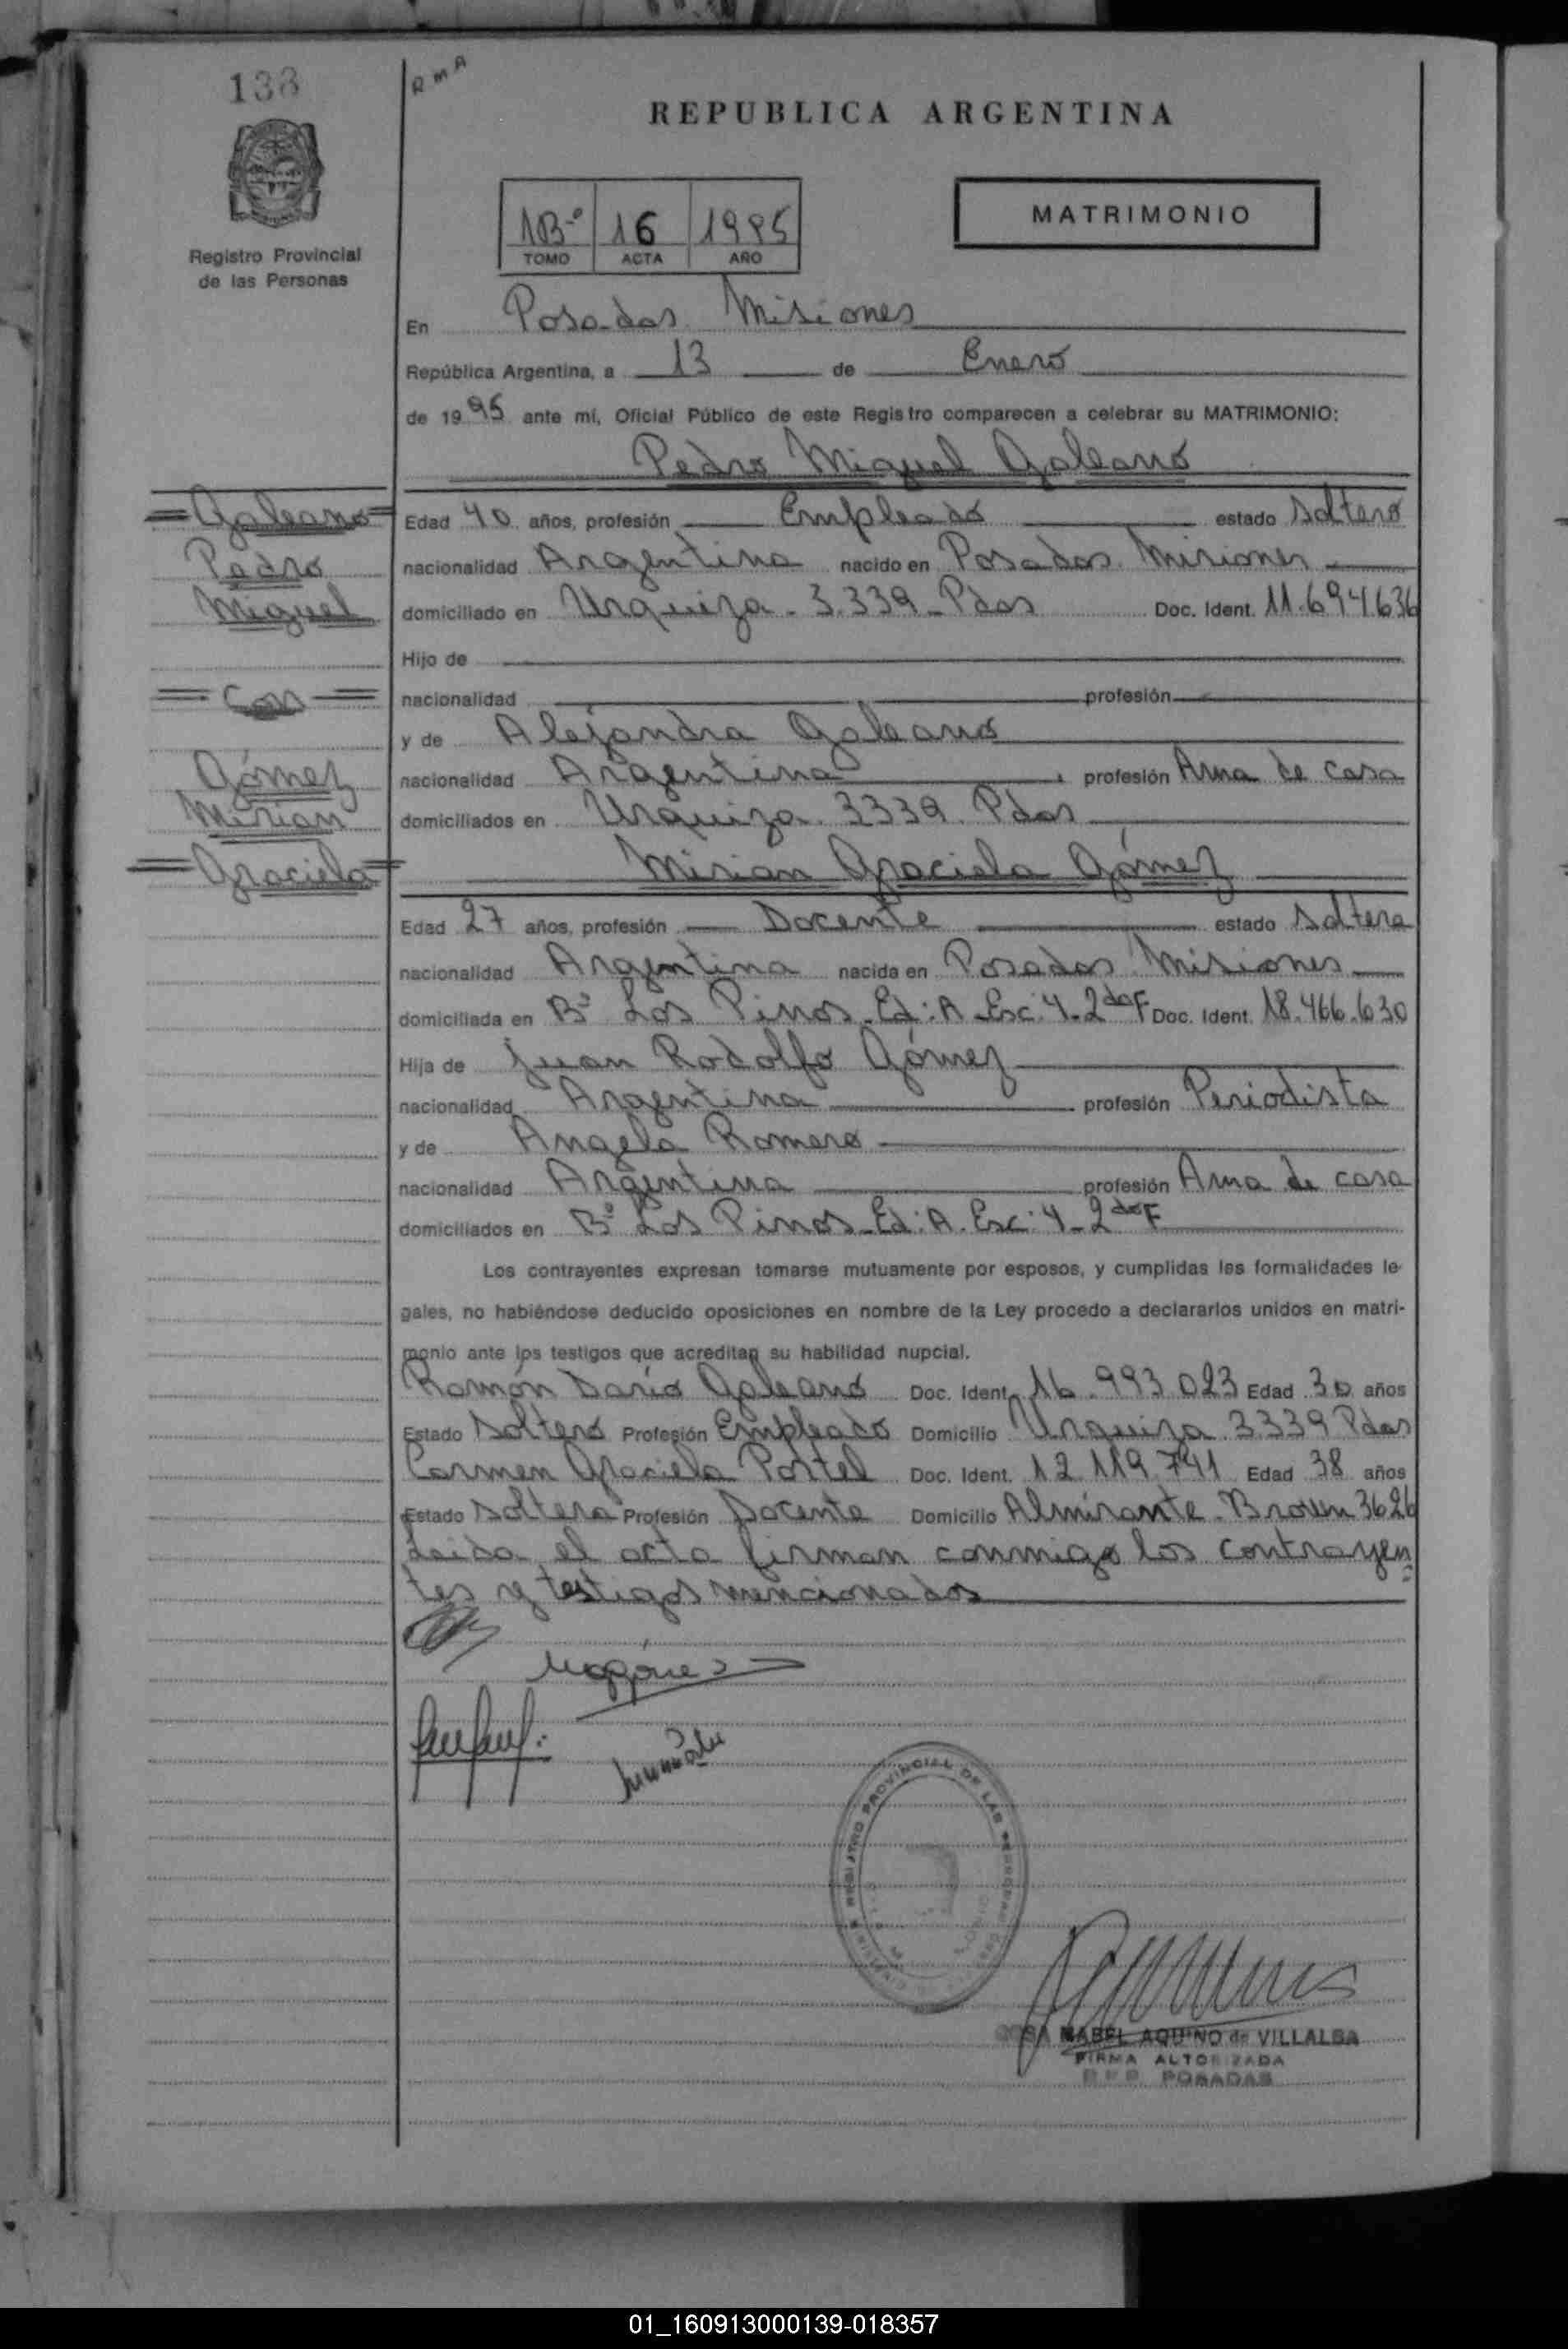 138
R m A
REPUBLICA ARGENTINA
1B-º 16 1995
TOMO ACTA AÑO
MATRIMONIO
Registro Provincial
de las Personas
En Posadas Misiones
República Argentina, a 13 de Enero
de 19 95 ante mí, Oficial Público de este Registro comparecen a celebrar su MATRIMONIO:
Pedro Miguel Galeano
Galeano
Pedro
Miguel
Con
Gómez
Mirian
Graciela
Edad 40 años, profesión Empleado estado Soltero
nacionalidad Argentina nacido en Posadas Misiones
domiciliado en Urquiza - 3.339 - Pdas Doc. Ident. 11.694.636
Hijo de
nacionalidad profesión
y de Alejandra Galeano
nacionalidad Argentina profesión Ama de casa
domiciliados en Urquiza 3339 Pdas
Mirian Graciela Gómez
Edad 27 años, profesión Docente estado Soltera
nacionalidad Argentina nacida en Posadas Misiones
domiciliada en Bº Los Pinos - Ed: A - Esc: 4 - 2do F Doc. Ident. 18.466.630
Hija de Juan Rodolfo Gómez
nacionalidad Argentina profesión Periodista
y de Angela Romero
nacionalidad Argentina profesión Ama de casa
domiciliados en Bº Los Pinos - Ed: A. Esc: 4 - 2do F
Los contrayentes expresan tomarse mutuamente por esposos, y cumplidas las formalidades le-
gales, no habiéndose deducido oposiciones en nombre de la Ley procedo a declararlos unidos en matri-
monio ante los testigos que acreditan su habilidad nupcial.
Ramón Darío Galeano Doc. Ident. 16.993.023 Edad 30 años
Estado Soltero Profesión Empleado Domicilio Urquiza 3.339 Pdas
Carmen Graciela Portel Doc. Ident. 12.119.741 Edad 38 años
Estado Soltera Profesión Docente Domicilio Almirante Brown 3626
Leida el acta firman conmigo los contrayen
tes y testigos mencionados
REGISTRO PROVINCIAL DE LAS PERSONAS
ROSA MABEL AQUINO de VILLALBA
FIRMA AUTORIZADA
R P P POSADAS
01_160913000139-018357